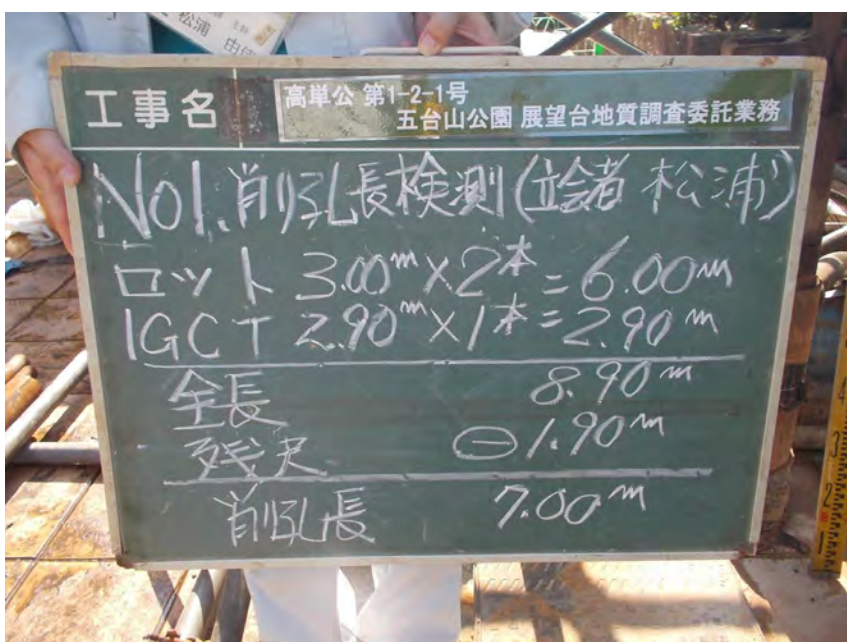 松浦 由佳
工事名
高単公 第1-2-1号
五台山公園 展望台地質調査委託業務
No1.削孔長検測(立会者 松浦)
ロット 3.00m×2本=6.00m
IGCT 2.90m×1本=2.90m
全長 8.90m
残尺 ⊖1.90m
削孔長 7.00m
4
3
2
1